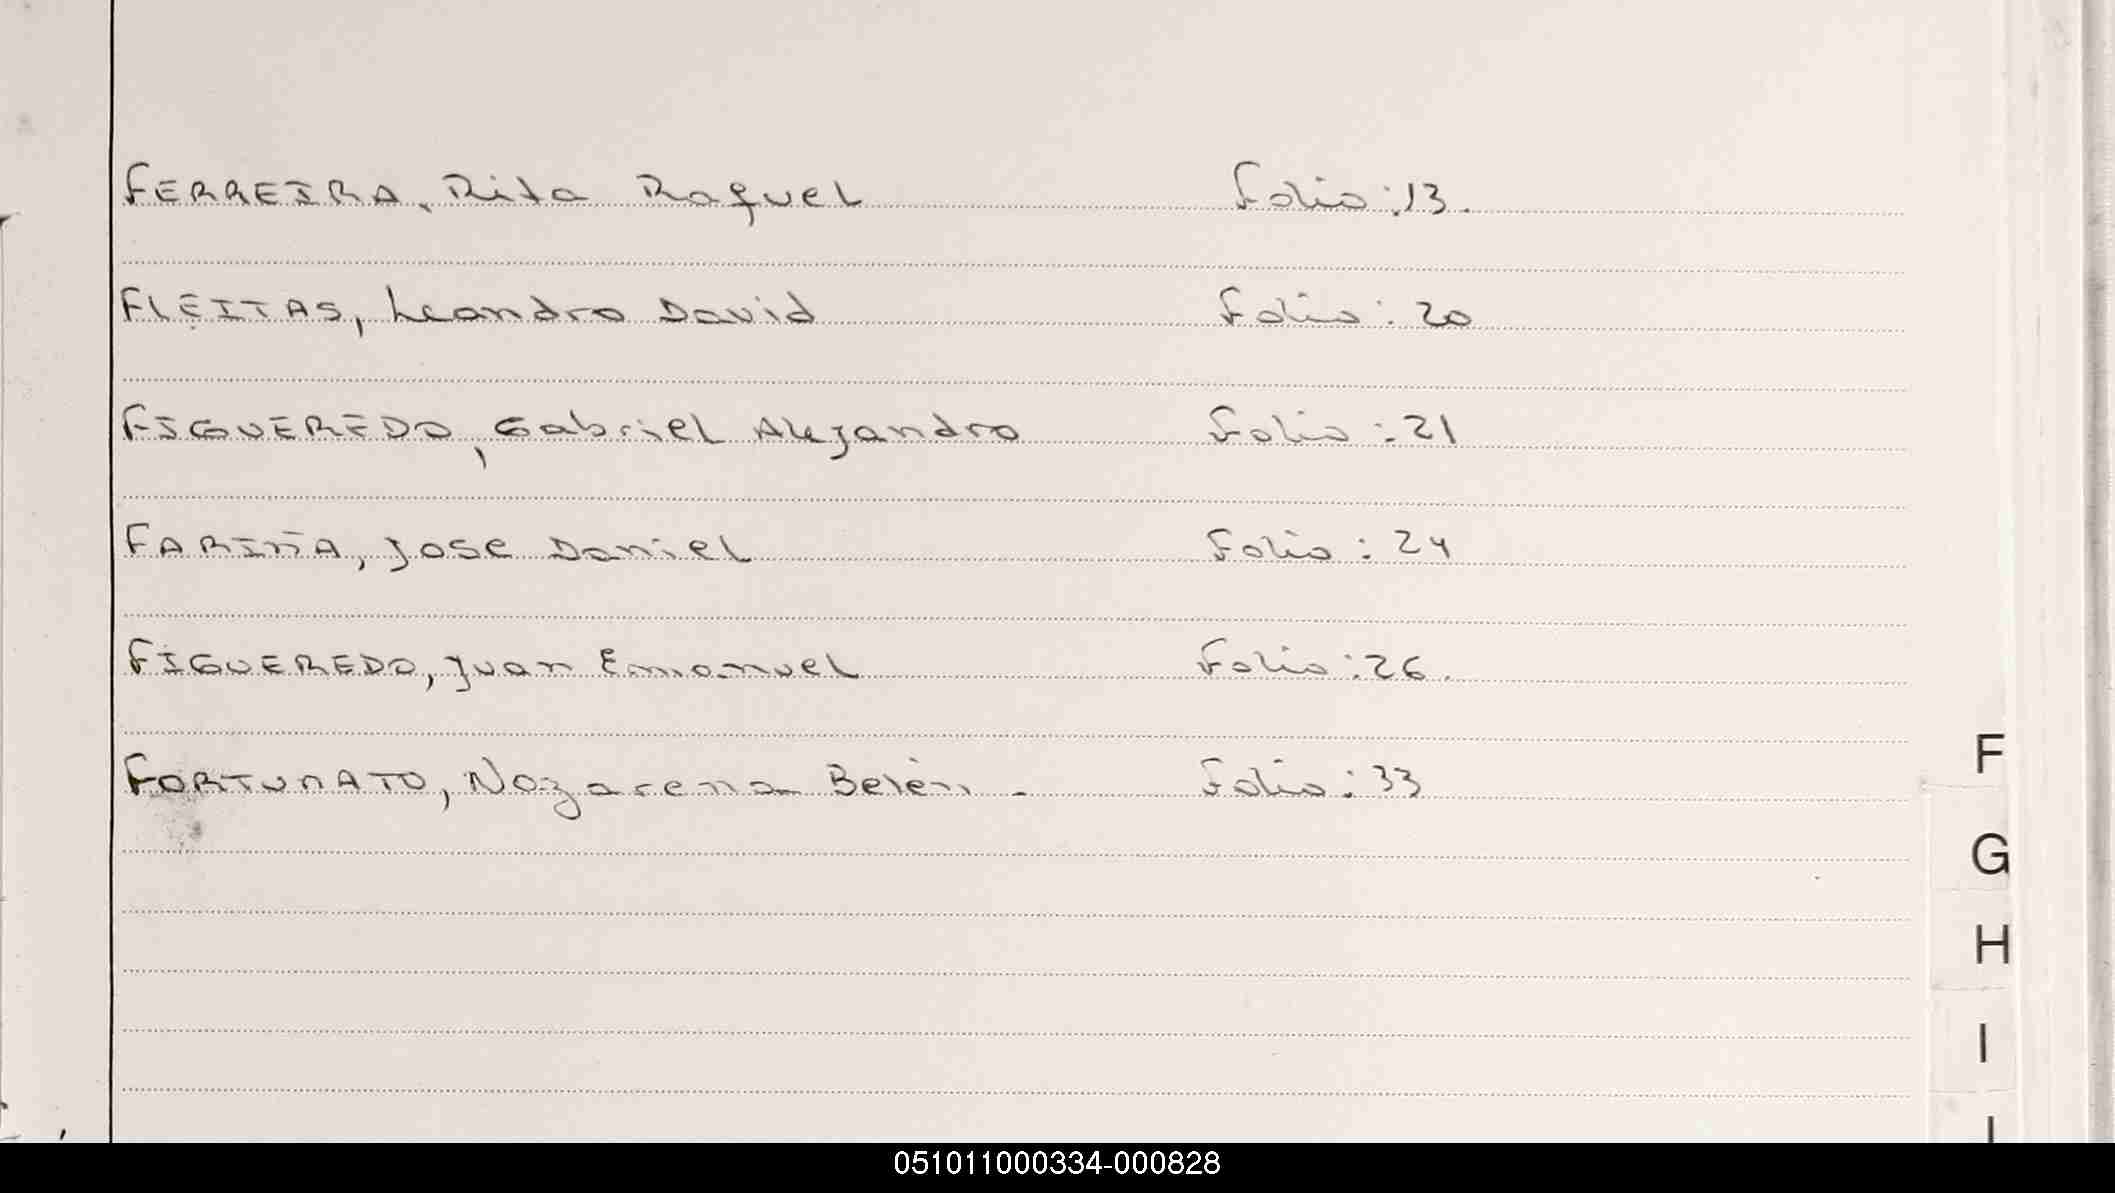 FERREIRA, Rita Raquel Folio: 13.
FLEITAS, Leandro David Folio: 20
FIGUEREDO, Gabriel Alejandro Folio: 21
FARIÑA, Jose Daniel Folio: 24
FIGUEREDO, Juan Emanuel Folio: 26.
FORTUNATO, Nazarena Belén. Folio: 33
F
G
H
I
051011000334-000828